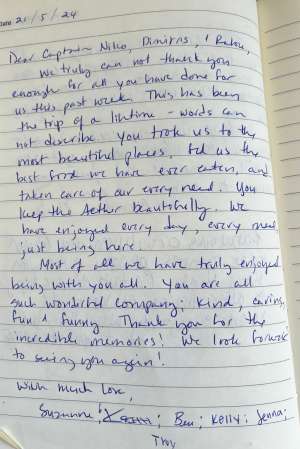 Date 21/5/24
Dear Captain Niko, Dimitris, & Ratou,
We truly can not thank you
enough for all you have done for
us this past week. This has been
the trip of a lifetime - words can
not describe. You took us to the
most beautiful places, fed us the
best food we have ever eaten, and
taken care of our every need. You
keep the Aether beautifully. We
have enjoyed every day, every meal
just being here.
Most of all we have truly enjoyed
being with you all. You are all
such wonderful company; kind, caring,
fun & funny. Thank you for the
incredible memories! We look forward
to seeing you again!
With much love,
Suzanne; Ben; Kelly; Jenna;
Troy